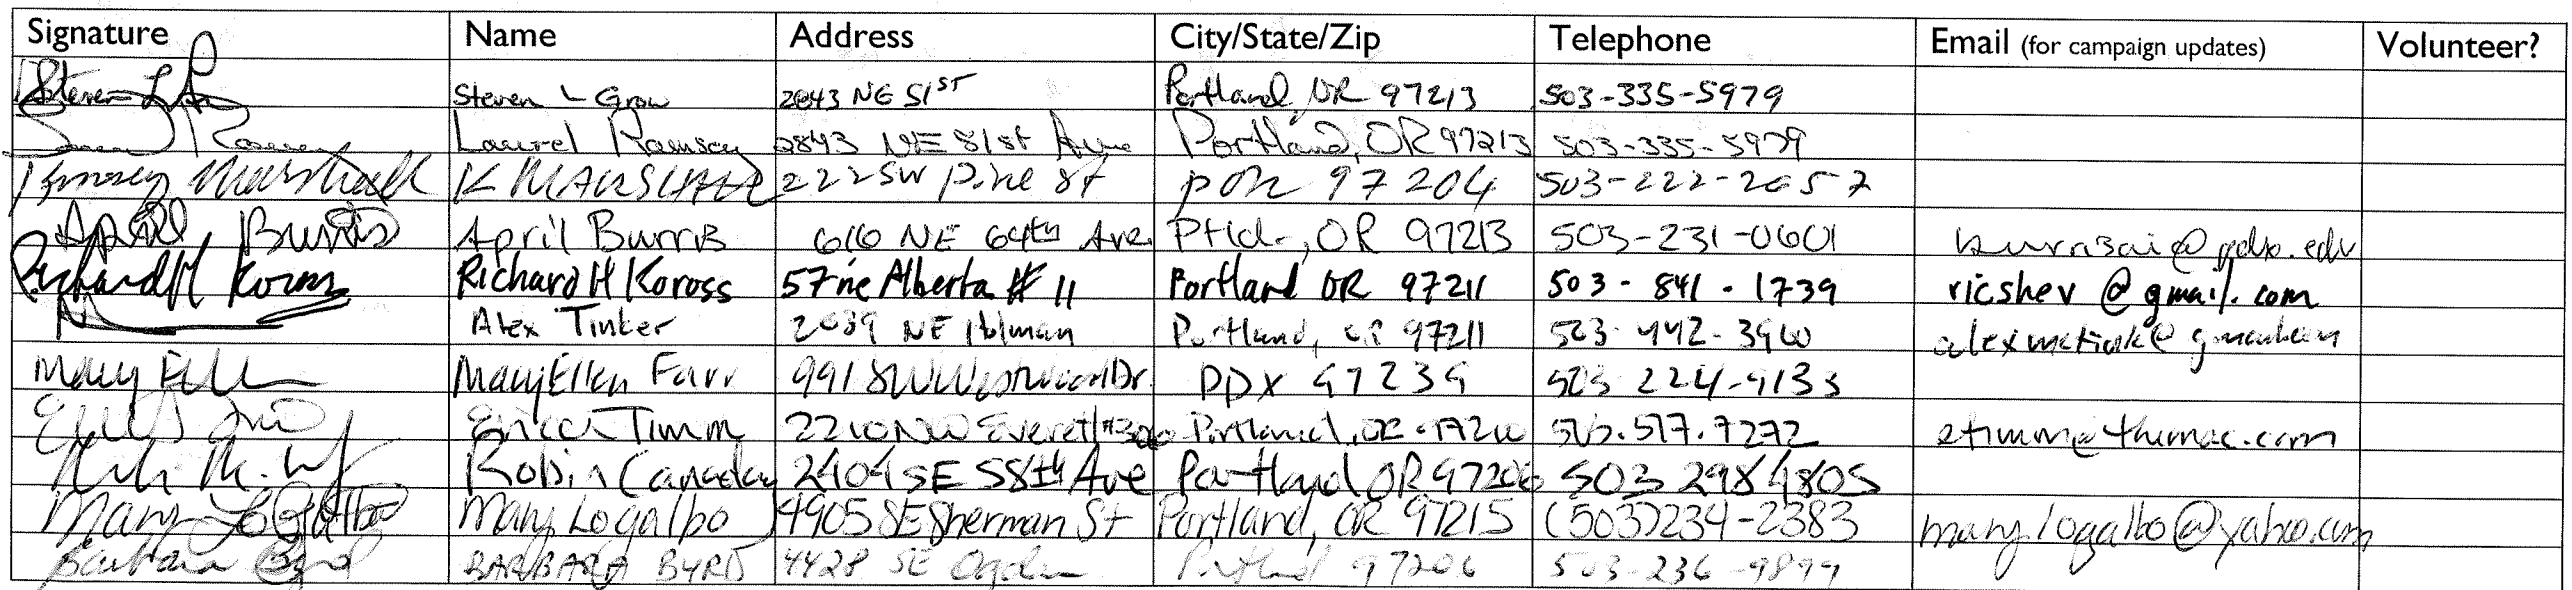 Signature Name Address City/State/Zip Telephone Email (for campaign updates) Volunteer?
Steven L Steven L Grow 2843 NE 81ST Portland, OR 97213 503-335-5979
Laurel Ramsey 2843 NE 81st Ave Portland, OR 97213 503-335-5979
Marshall K MARSHALL 222 SW Pine St POR 97204 503-222-2657
April Burris April Burris 616 NE 64th Ave Ptld., OR 97213 503-231-0601
Richard H Koross Richard H Koross 57 ne Alberta # 11 Portland OR 97211 503 - 841 - 1739 ricshev @ gmail.com
Alex Tinker 2039 NE Holman Portland, OR 97211 503-442-3960
Mary Ellen MaryEllen Farr 991 SW Westwood Dr. PDX 97239 503 224-9133
Timm 2210 NW Everett Portland, OR 97210 503.517.7272
Robin Canaday 2404 SE 58th Ave Portland OR 97206 503 298 4805
Mary LoGalbo Mary Logalbo 4905 SE Sherman St Portland, OR 97215 (503)234-2383 mary.logalbo@yahoo.com
Barbara Byrd BARBARA BYRD 4428 SE Ogden Portland 97206 503-236-9899